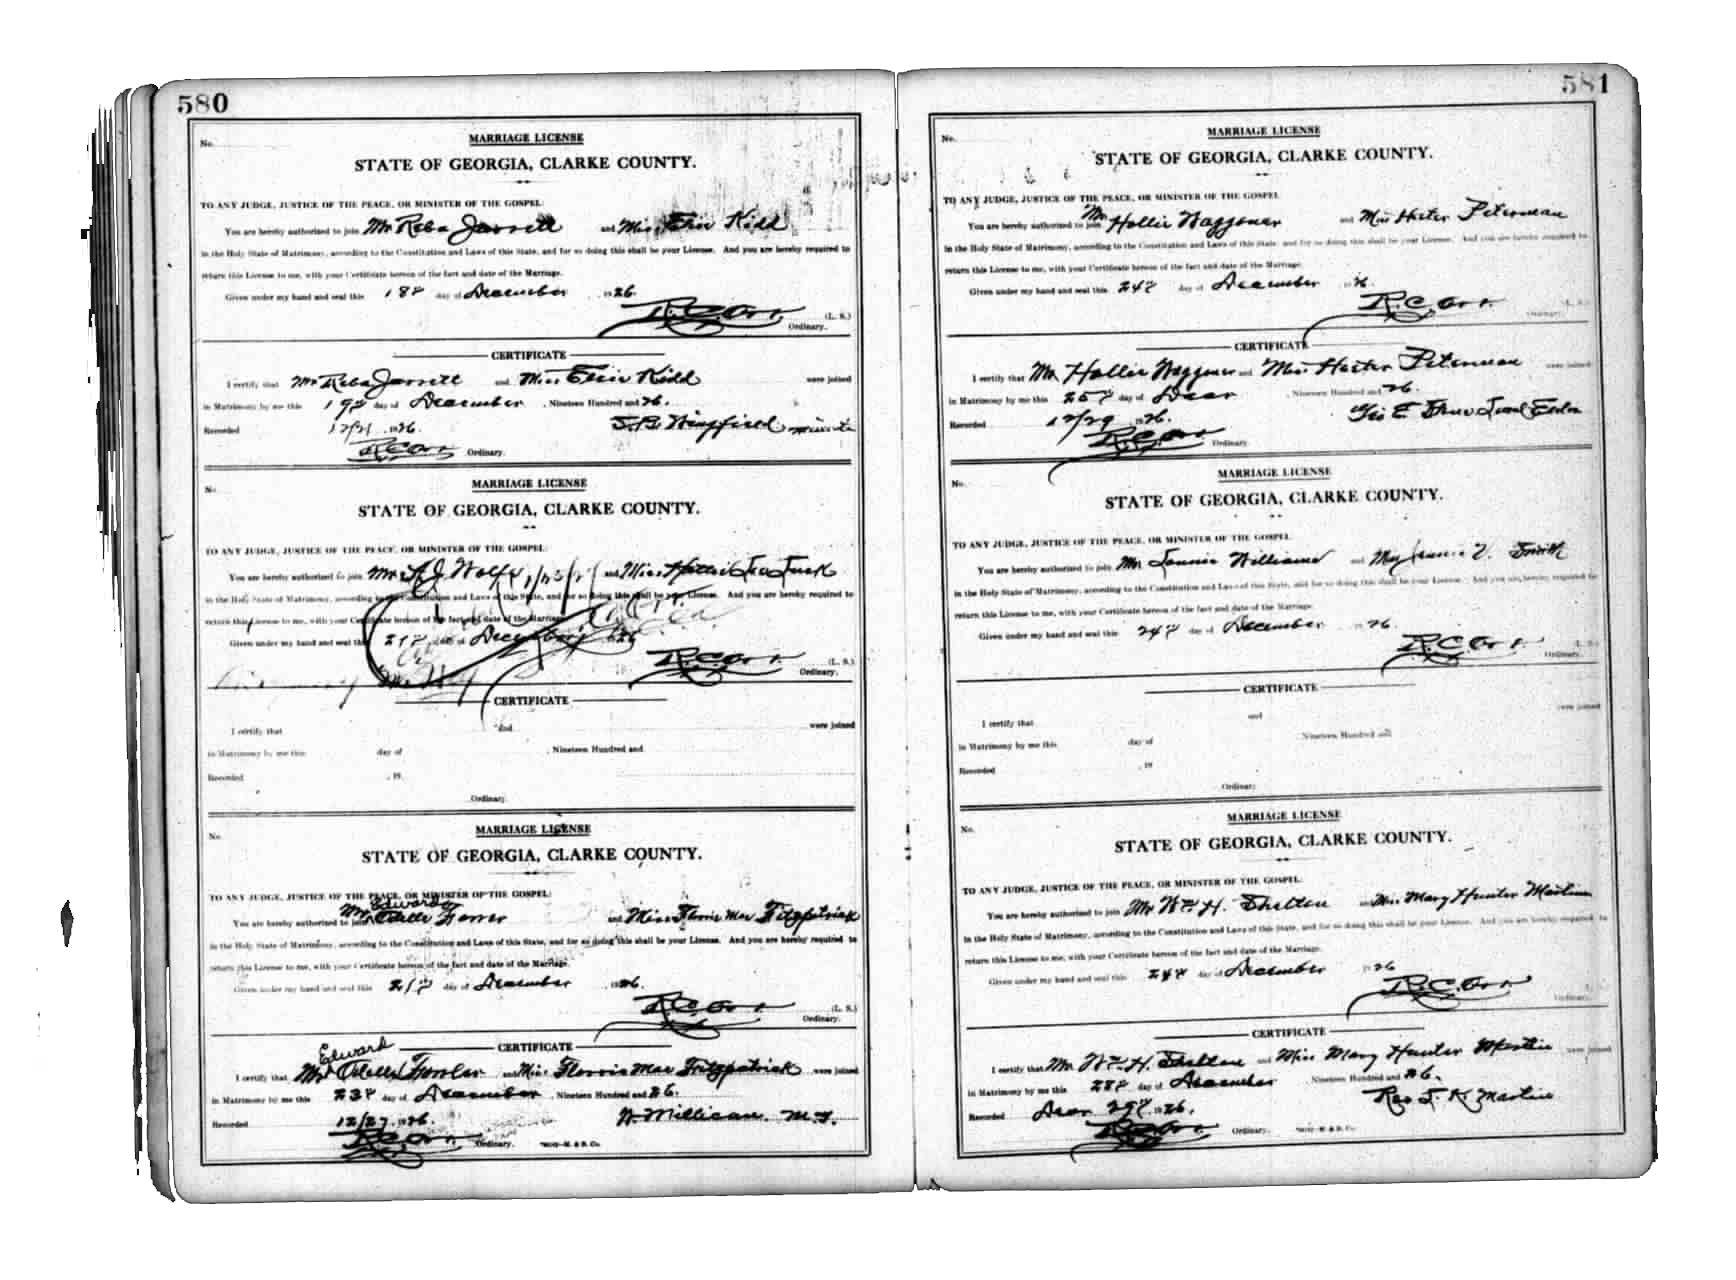 580
No.
MARRIAGE LICENSE
STATE OF GEORGIA, CLARKE COUNTY.
TO ANY JUDGE, JUSTICE OF THE PEACE, OR MINISTER OF THE GOSPEL:
You are hereby authorized to join Mr Reba Jarrett and Miss Elsie Kidd
in the Holy State of Matrimony, according to the Constitution and Laws of this State, and for so doing this shall be your License. And you are hereby required to
return this License to me, with your Certificate hereon of the fact and date of the Marriage.
Given under my hand and seal this 18" day of December 1926.
R.C. Orr. (L. S.)
Ordinary.
CERTIFICATE
I certify that Mr Reba Jarrett and Miss Elsie Kidd were joined
in Matrimony by me this 19" day of December, Nineteen Hundred and 26.
Recorded 12/21 1926. Wingfield
R.C. Orr. Ordinary.
No.
MARRIAGE LICENSE
STATE OF GEORGIA, CLARKE COUNTY.
TO ANY JUDGE, JUSTICE OF THE PEACE, OR MINISTER OF THE GOSPEL:
You are hereby authorized to join Mr and Miss
in the Holy State of Matrimony, according to the Constitution and Laws of this State, and for so doing this shall be your License. And you are hereby required to
return this License to me, with your Certificate hereon of the fact and date of the Marriage.
Given under my hand and seal this 21" day of December 1926
R.C. Orr. (L. S.)
Ordinary.
CERTIFICATE
I certify that and were joined
in Matrimony by me this day of , Nineteen Hundred and
Recorded , 19
Ordinary.
No.
MARRIAGE LICENSE
STATE OF GEORGIA, CLARKE COUNTY.
TO ANY JUDGE, JUSTICE OF THE PEACE, OR MINISTER OF THE GOSPEL:
Edward
You are hereby authorized to join Mr Odelle and Miss Mae Fitzpatrick
in the Holy State of Matrimony, according to the Constitution and Laws of this State, and for so doing this shall be your License. And you are hereby required to
return this License to me, with your Certificate hereon of the fact and date of the Marriage.
Given under my hand and seal this 21" day of December 1926.
R.C. Orr. (L. S.)
Ordinary.
CERTIFICATE
Edward
I certify that Mr Odelle and Miss Mae Fitzpatrick were joined
in Matrimony by me this 23" day of December, Nineteen Hundred and 26.
Recorded 12/27 1926. W. Millican. M.G.
R.C. Orr. Ordinary.
581
No.
MARRIAGE LICENSE
STATE OF GEORGIA, CLARKE COUNTY.
TO ANY JUDGE, JUSTICE OF THE PEACE, OR MINISTER OF THE GOSPEL
You are hereby authorized to join Mr Hollie Waggoner and Miss Hester Peterman
in the Holy State of Matrimony, according to the Constitution and Laws of this State, and for so doing this shall be your License. And you are hereby required to
return this License to me, with your Certificate hereon of the fact and date of the Marriage.
Given under my hand and seal this 24" day of December 26.
R.C. Orr. (L. S.)
Ordinary.
CERTIFICATE
I certify that Mr Hollie Waggoner and Miss Hester Peterman were joined
in Matrimony by me this 25" day of , Nineteen Hundred and 26.
Recorded 12/29 1926.
R.C. Orr. Ordinary.
No.
MARRIAGE LICENSE
STATE OF GEORGIA, CLARKE COUNTY.
TO ANY JUDGE, JUSTICE OF THE PEACE, OR MINISTER OF THE GOSPEL
You are hereby authorized to join Mr Lonnie Williams and Smith
in the Holy State of Matrimony, according to the Constitution and Laws of this State, and for so doing this shall be your License. And you are hereby required to
return this License to me, with your Certificate hereon of the fact and date of the Marriage.
Given under my hand and seal this 24" day of December 26.
R.C. Orr. (L. S.)
Ordinary.
CERTIFICATE
I certify that and were joined
in Matrimony by me this day of , Nineteen Hundred and
Recorded , 19
Ordinary
No.
MARRIAGE LICENSE
STATE OF GEORGIA, CLARKE COUNTY.
TO ANY JUDGE, JUSTICE OF THE PEACE, OR MINISTER OF THE GOSPEL
You are hereby authorized to join Mr Wm H. Shelton and Miss Mary Hunter Martin
in the Holy State of Matrimony, according to the Constitution and Laws of this State, and for so doing this shall be your License. And you are hereby required to
return this License to me, with your Certificate hereon of the fact and date of the Marriage.
Given under my hand and seal this 24" day of December 1926
R.C. Orr.
Ordinary.
CERTIFICATE
I certify that Mr Wm H. Shelton and Miss Mary Hunter Martin were joined
in Matrimony by me this 28" day of December, Nineteen Hundred and 26.
Recorded 29" 1926. Rev J. K. Martin
Ordinary.